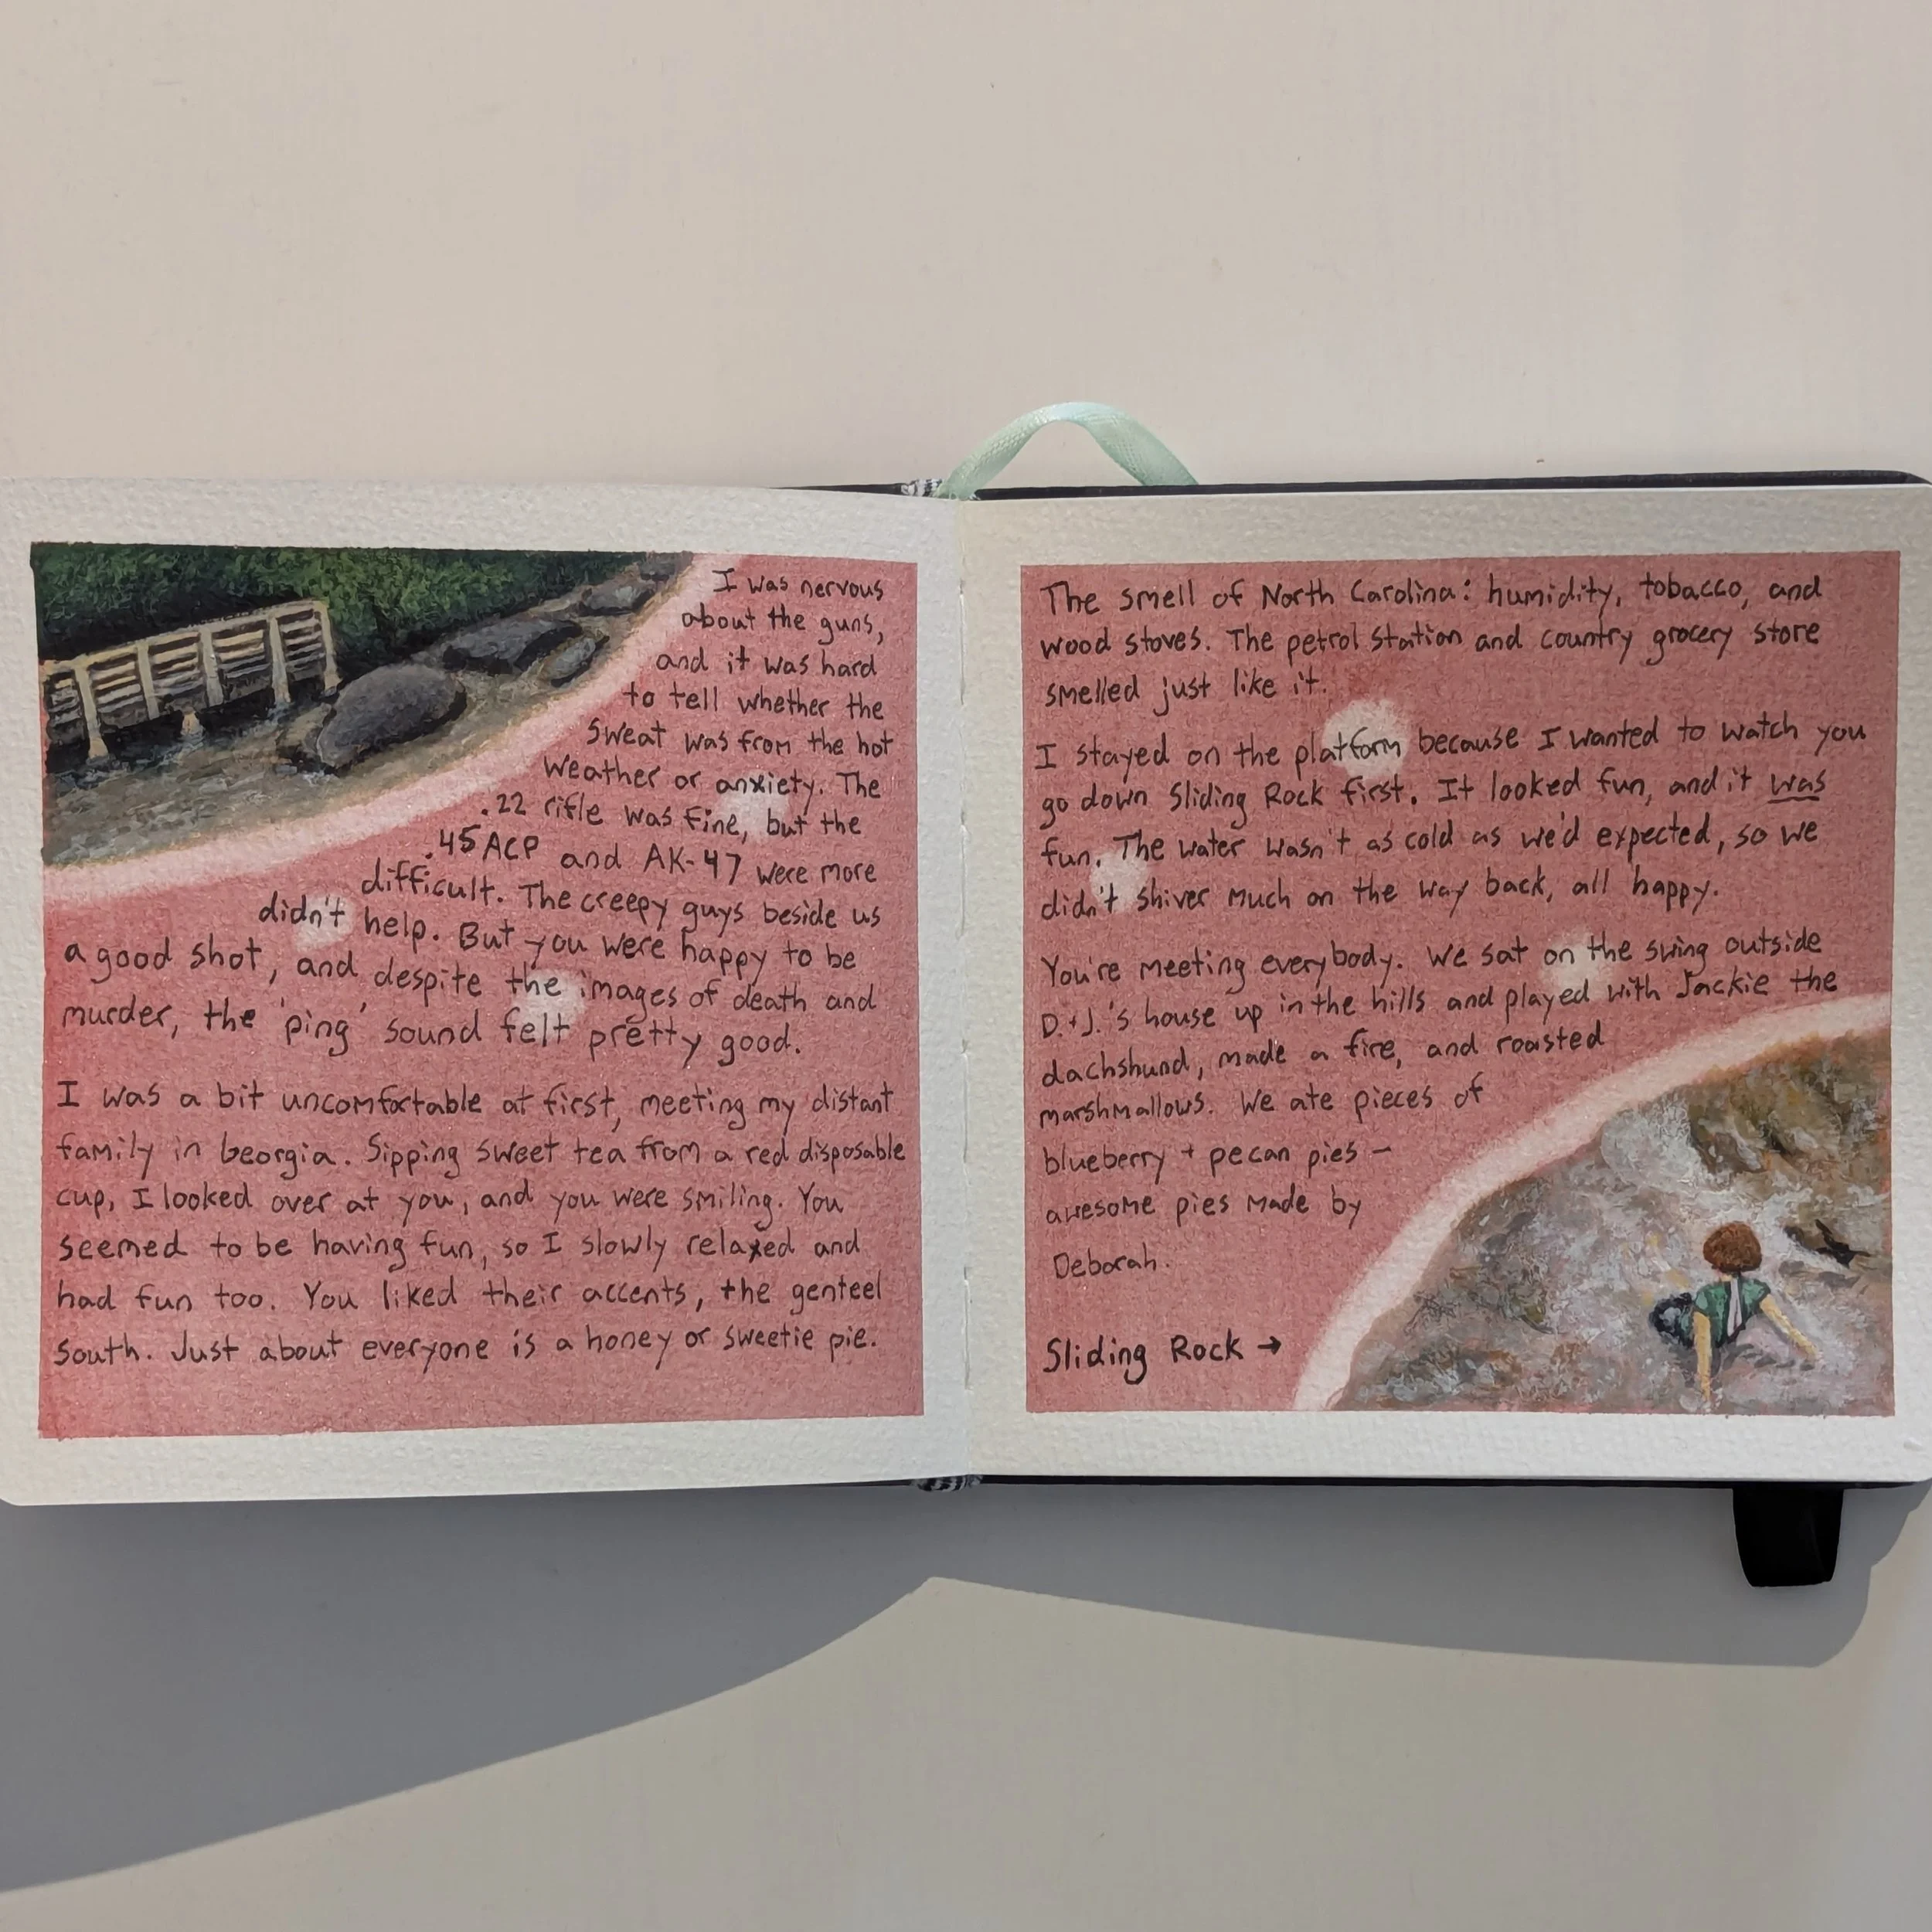 I was nervous
about the guns,
and it was hard
to tell whether the
sweat was from the hot
weather or anxiety. The
.22 rifle was fine, but the
.45 ACP and AK-47 were more
difficult. The creepy guys beside us
didn't help. But you were happy to be
a good shot, and despite the images of death and
murder, the 'ping' sound felt pretty good.
I was a bit uncomfortable at first, meeting my distant
family in Georgia. Sipping sweet tea from a red disposable
cup, I looked over at you, and you were smiling. You
seemed to be having fun, so I slowly relaxed and
had fun too. You liked their accents, the genteel
South. Just about everyone is a honey or sweetie pie.
The smell of North Carolina: humidity, tobacco, and
wood stoves. The petrol station and country grocery store
smelled just like it.
I stayed on the platform because I wanted to watch you
go down Sliding Rock first. It looked fun, and it was
fun. The water wasn't as cold as we'd expected, so we
didn't shiver much on the way back, all happy.
You're meeting everybody. We sat on the swing outside
D.+J.'s house up in the hills and played with Jackie the
dachshund, made a fire, and roasted
marshmallows. We ate pieces of
blueberry + pecan pies –
awesome pies made by
Deborah.
Sliding Rock →